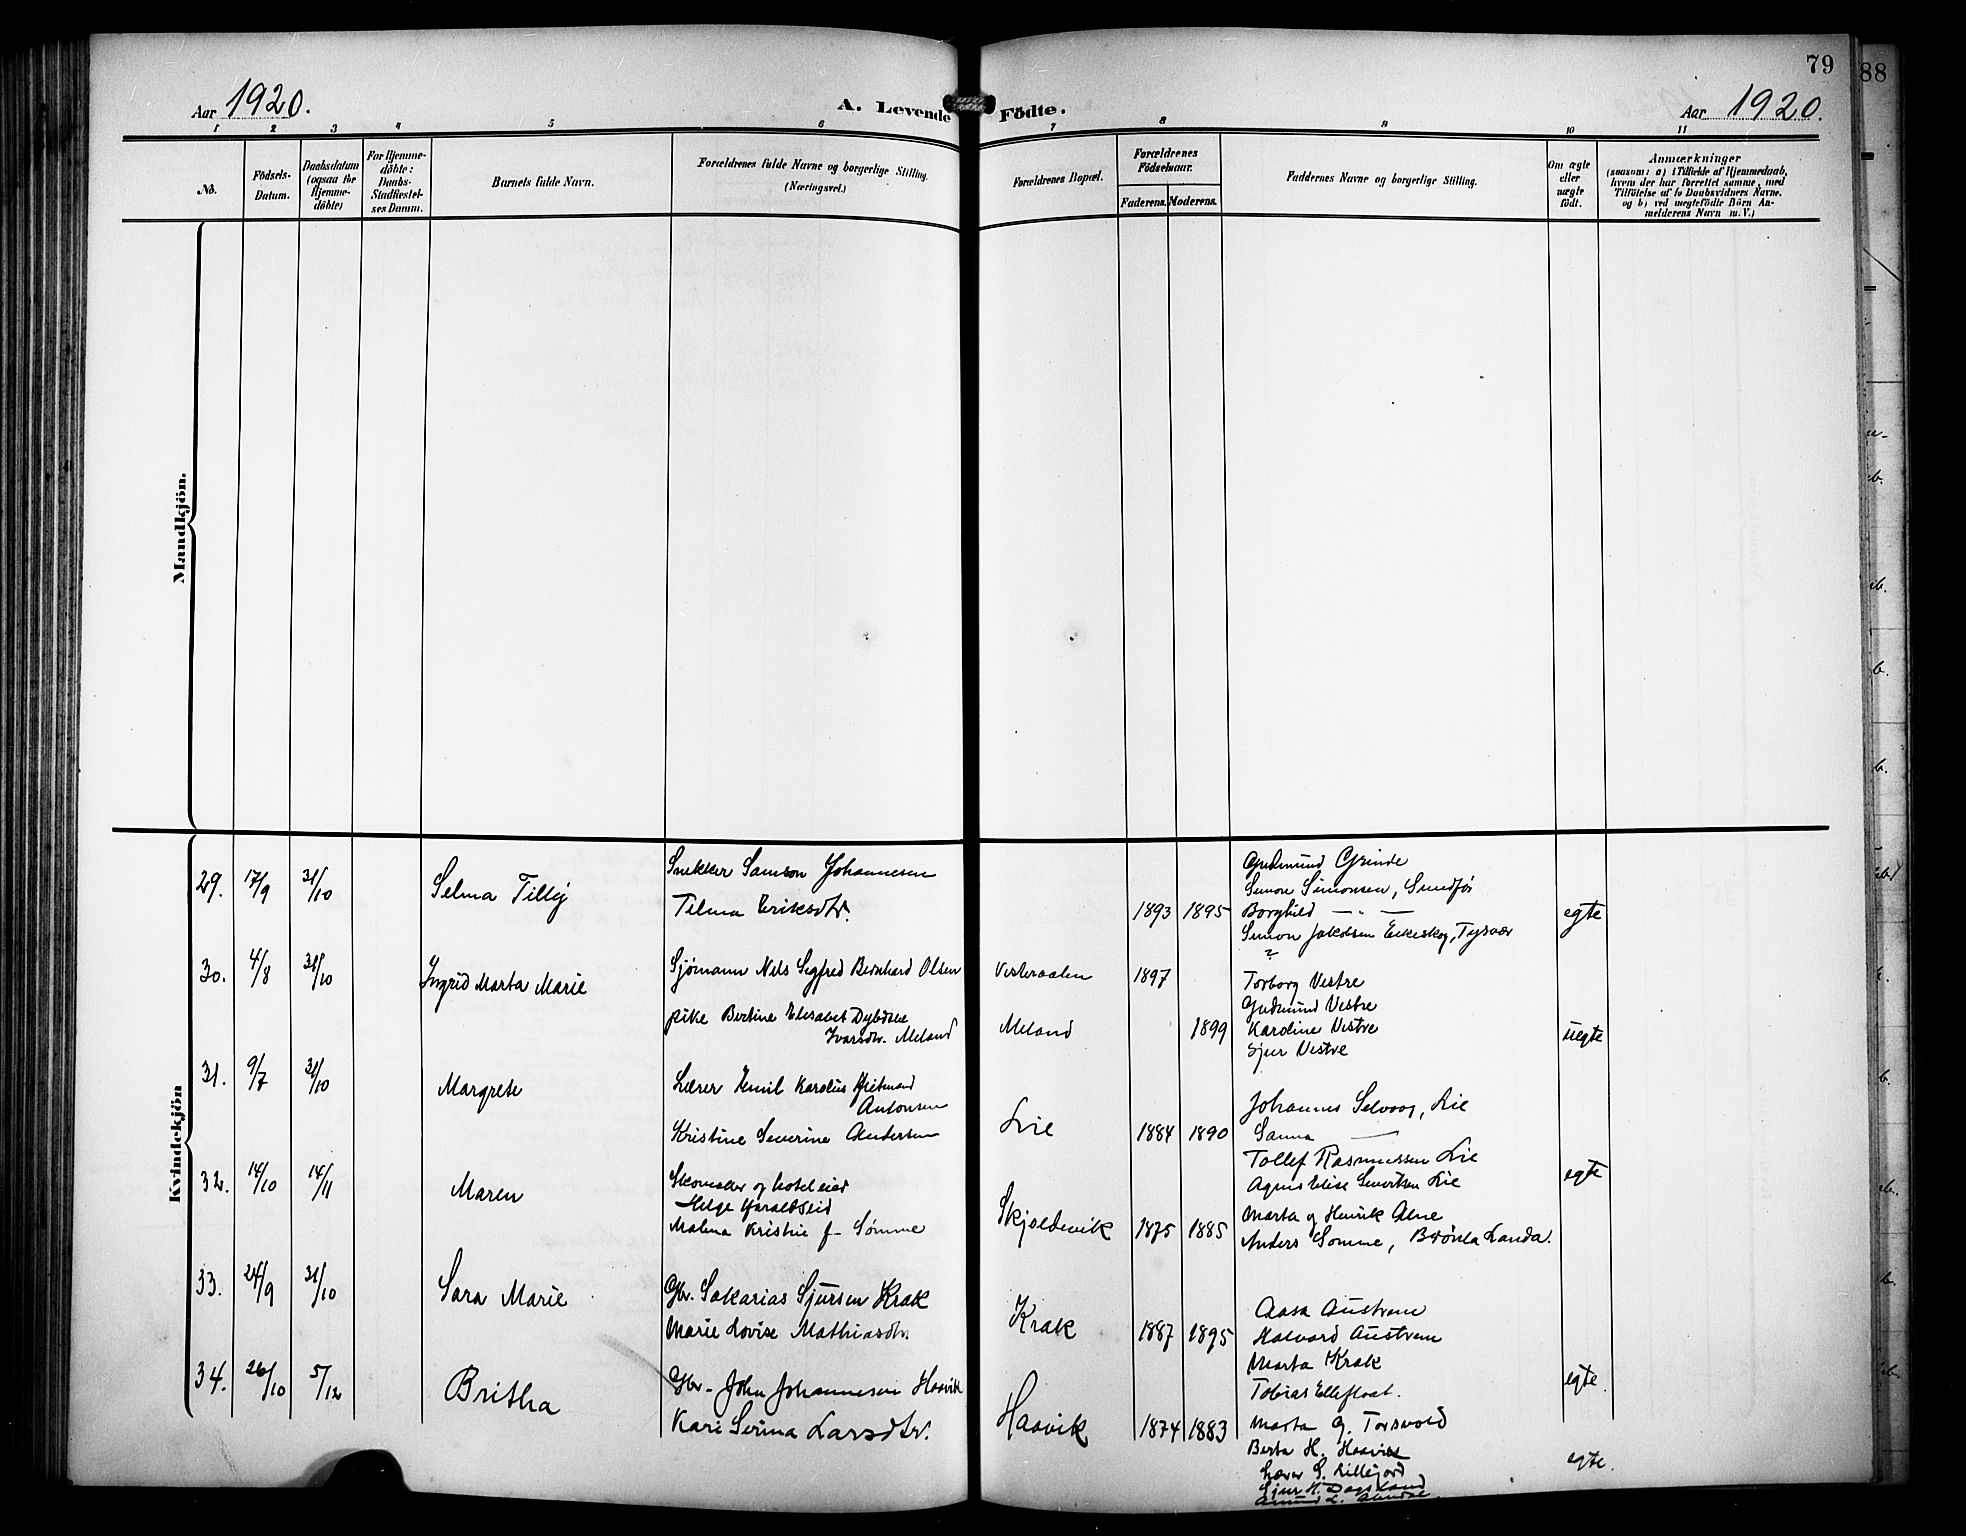 79
88
Aar 1920.
A. Levende Födte.
Aar 1920.
1 2 3 4 5 6 7 8 9 10 11
No.
Födsels-
Datum.
Daabsdatum
(ogsaa for
Hjemme-
döbte)
For Hjemme-
döbte:
Daabs-
Stadfestel-
ses Datum.
Barnets fulde Navn.
Forældrenes fulde Navne og borgerlige Stilling.
(Næringsvei.)
Forældrenes Bopæl.
Forældrenes
Födselsaar.
Faderens. Moderens.
Faddernes Navne og borgerlige Stilling.
Om ægte
eller
uægte
födt.
Anmærkninger
(saasom: a) i Tilfælde af Hjemmedaab,
hvem der har forrettet samme, med
Tilföielse af to Daabsvidners Navne,
og b) ved uægtefödte Börn An-
melderens Navn m. V.)
Mandkjön.
Kvindekjön
29. 17/9 31/10 Selma Tilly
Snekker Samson Johannesen
Tilma Eriksdtr.
1893 1895
Gudmund Grinde
Simon Simonsen,
Borghild — " —
Simon Jakobsen Eikeskog, Tysvær
egte
30. 4/8 31/10 Ingrid Marta Marie
Sjømann Nils Sigfred Bernhard Olsen
pike Bertine Elisabet
Ivarsdtr. Meland
Vesteraalen 1897
Meland 1899
Torborg Vestre
Gudmund Vestre
Karoline Vestre
Sjur Vestre
uegte
31. 9/7 31/10 Margrete
Lærer Emil Karolius
Antonsen
Kristine Severine Andersen
Lie 1884 1890
Johannes Selvaag, Lie
Sanna —
Tollef Rasmussen Lie
Agnes Elise Sivertsen Lie
egte
32. 14/10 14/11 Maren
Skomaker og hoteleier
Helge Haraldseid
Malena Kristine f. Sømme
Skjoldevik 1875 1885
Marta og Henrik Alne
Anders Somme, Landa.
33. 24/9 31/10 Sara Marie
Gbr. Sakarias Sjursen Krak
Marie Lovise Mathiasdtr
Krak 1887 1895
Aasa Austrem
Halvard Austrem
Marta Krak
Tobias Elleflaat.
egte.
34. 26/10 5/12 Britha
Gbr. John Johannesen Haavik
Kari Serina Larsdtr.
Haavik 1874 1883
Marta G. Torsvold
Berta H. Haavik
Lærer S. Lillejord
Sjur H. Dagsland
egte.